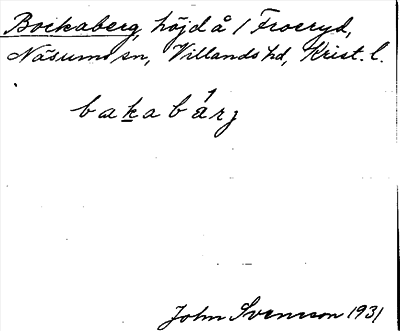 Bockaberg, höjd å 1 Froeryd,
Näsums sn, Villands hd, Krist. l.
bakabárj
John Svensson 1931